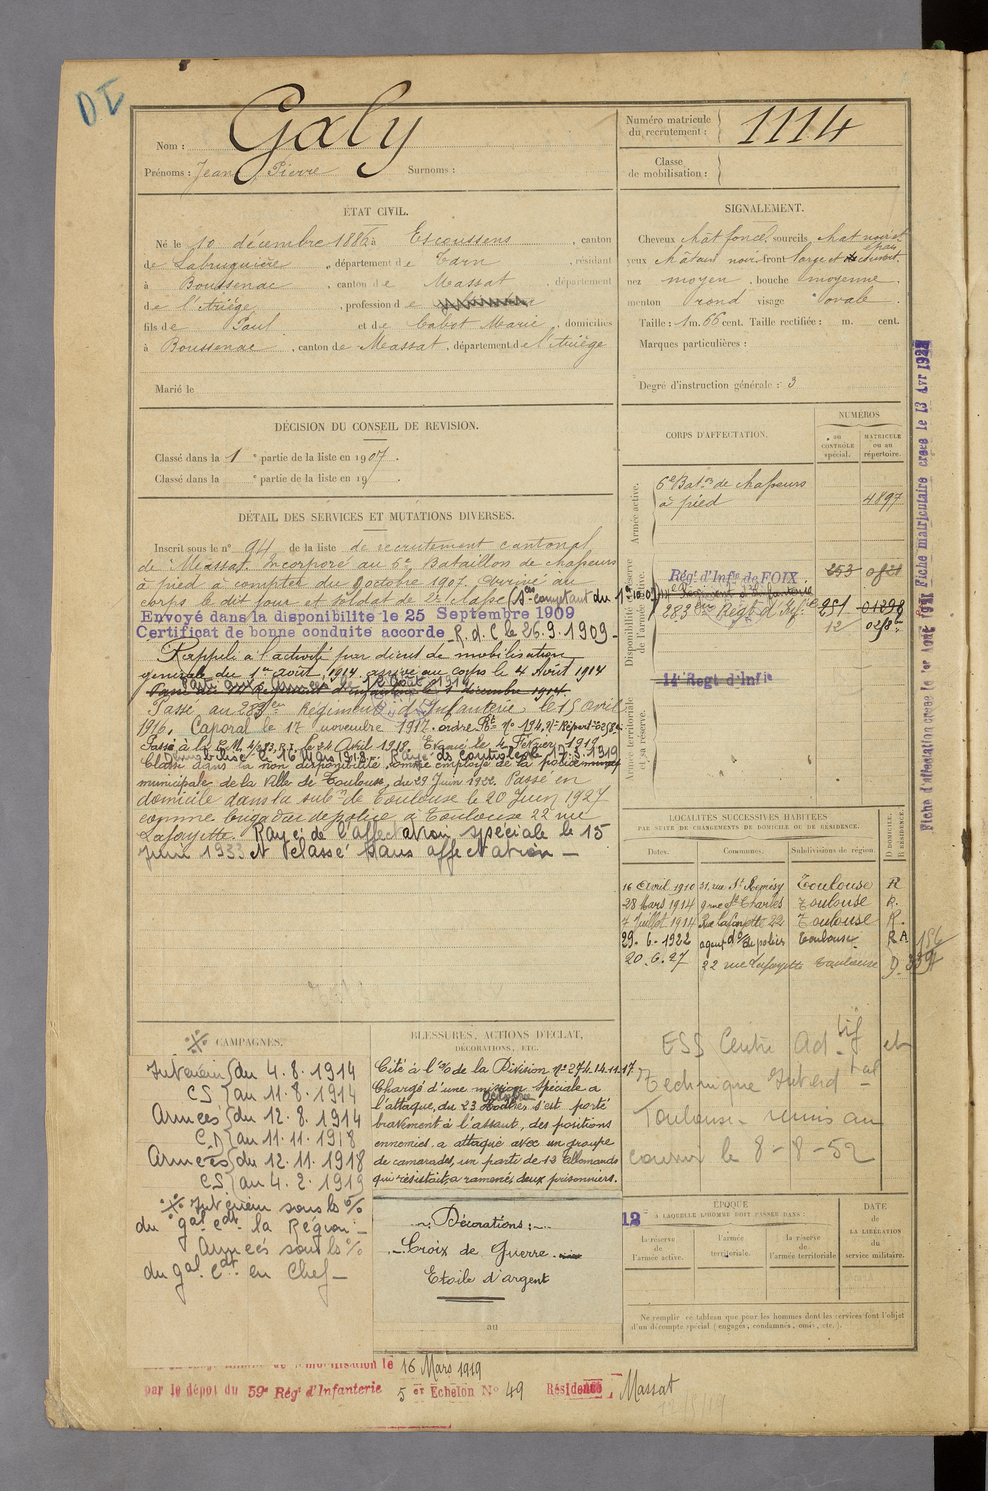 DI
Nom : Galy
Prénoms : Jean Pierre Surnoms :
Numéro matricule du recrutement : 1114
Classe de mobilisation :
ÉTAT CIVIL.
Né le 10 décembre 1886 à Escoussens, canton
de Labruguière, département de Tarn, résidant
à Boussenac, canton de Massat, département
de l'Ariège, profession de
fils de Paul et de Cabot Marie, domiciliés
à Boussenac, canton de Massat, département de l'Ariège
Marié le
SIGNALEMENT.
Cheveux chât foncé, sourcils chat noir et épais
yeux châtain noir, front large et
nez moyen, bouche moyenne
menton rond visage ovale
Taille : 1 m. 66 cent. Taille rectifiée : m. cent.
Marques particulières :
Degré d'instruction générale : 3
DÉCISION DU CONSEIL DE REVISION.
Classé dans la 1e partie de la liste en 1907.
Classé dans la e partie de la liste en 19 .
DÉTAIL DES SERVICES ET MUTATIONS DIVERSES.
Inscrit sous le n° 94 de la liste de recrutement cantonal
de Massat. Incorporé au 6e Bataillon de chasseurs
à pied à compter du 9 octobre 1907. Arrivé au
corps le dit jour et soldat de 2e classe (Ses comptant du 1er 10.07)
Envoyé dans la disponibilité le 25 Septembre 1909
Certificat de bonne conduite accordé R.d.C. le 26.9.1909
Rappelé à l'activité par décret de mobilisation
générale du 1er août 1914 arrivé au corps le 4 Août 1914
Passé au 283e Régiment d'Infanterie le 15 avril
1916. Caporal le 17 novembre 1917. ordre Rt n° 194.
Passé à la C.M. 4/283 R.I. le 24 Avril 1918. Evacué le 4 Février 1919
Classé dans la non disponibilité comme employé de la police
municipale de la ville de Toulouse, du 29 Juin 1922. Passé en
domicile dans la subon de Toulouse le 20 Juin 1927
comme brigadier de police à Toulouse 22 rue
Lafayette. Rayé de l'affectation spéciale le 15
Juin 1933 et classé sans affectation
CORPS D'AFFECTATION.
NUMÉROS
au CONTRÔLE spécial.
MATRICULE ou au répertoire.
Armée active.
6e Baton de chasseurs
à pied 4897
Disponibilité et réserve de l'armée active.
Régt d'Infie de FOIX 253
283ème Régt d'Infie 251 01298
12
14e Regt d'Infie
Armée territoriale et sa réserve.
LOCALITÉS SUCCESSIVES HABITÉES
PAR SUITE DE CHANGEMENTS DE DOMICILE OU DE RÉSIDENCE.
Dates. Communes. Subdivisions de région. D DOMICILE. R RÉSIDENCE.
16 Avril 1910 31, rue St Remésy Toulouse R
28 Mars 1914 9 rue St Charles Toulouse R.
7 Juillet 1914 Rue Lafayette 22 Toulouse R.
29.6.1922 agent de police Toulouse R A 156
20.6.27 22 rue Lafayette Toulouse D.
ESS Centre Adtif et
Technique Interdtal
Toulouse remis au
courrier le 8-8-52
CAMPAGNES.
Intérieur du 4.8.1914
CS au 11.8.1914
Armées du 12.8.1914
C.D au 11.11.1918
Armées du 12.11.1918
CS au 4.2.1919
Intérieur sous les %
du Gal Cdt la Région
Armées sous les %
du Gal Cdt en Chef
BLESSURES, ACTIONS D'ÉCLAT,
DÉCORATIONS, ETC.
Cité à l'% de la Division N° 274.14.11.17
Chargé d'une mission spéciale a
l'attaque, du 23 octobre s'est porté
bravement à l'assaut, des positions
ennemies, a attaqué avec un groupe
de camarades, un parti de 13 allemands
qui résistait, a ramené, deux prisonniers.
Décorations :
Croix de Guerre
Etoile d'argent
au
12
ÉPOQUE
À LAQUELLE L'HOMME DOIT PASSER DANS :
la réserve de l'armée active.
l'armée territoriale.
la réserve de l'armée territoriale
DATE de LA LIBÉRATION du service militaire.
Ne remplir ce tableau que pour les hommes dont les services font l'objet
d'un décompte spécial (engagés, condamnés, omis, etc.).
démobilisation le 16 Mars 1919
par le dépot du 59e Régt d'Infanterie 5 er Echelon N° 49 Résidence Massat
Fiche matriculaire créée le 13 Avr 1922
Fiche d'affectation créée le 1er Août 1921